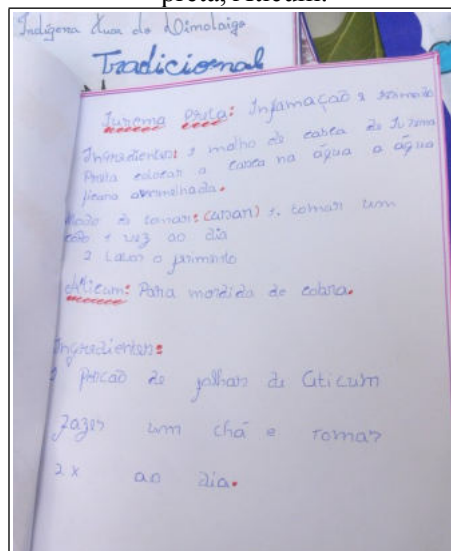 preta, Aticum.
Indígena Xucu do
Tradicional
Jurema Preta: Infamação e
Ingredientes: 1 molho de casca de Jurema
Preta colocar a casca na água a água
ficara avermelhada.
Modo de tomar: (usar) 1. tomar um
copo 1 vez ao dia
2 Lavar o
Aticum: Para mordida de cobra.
Ingredientes:
1 de folhas de Aticum
fazer um chá e tomar
2 x ao dia.